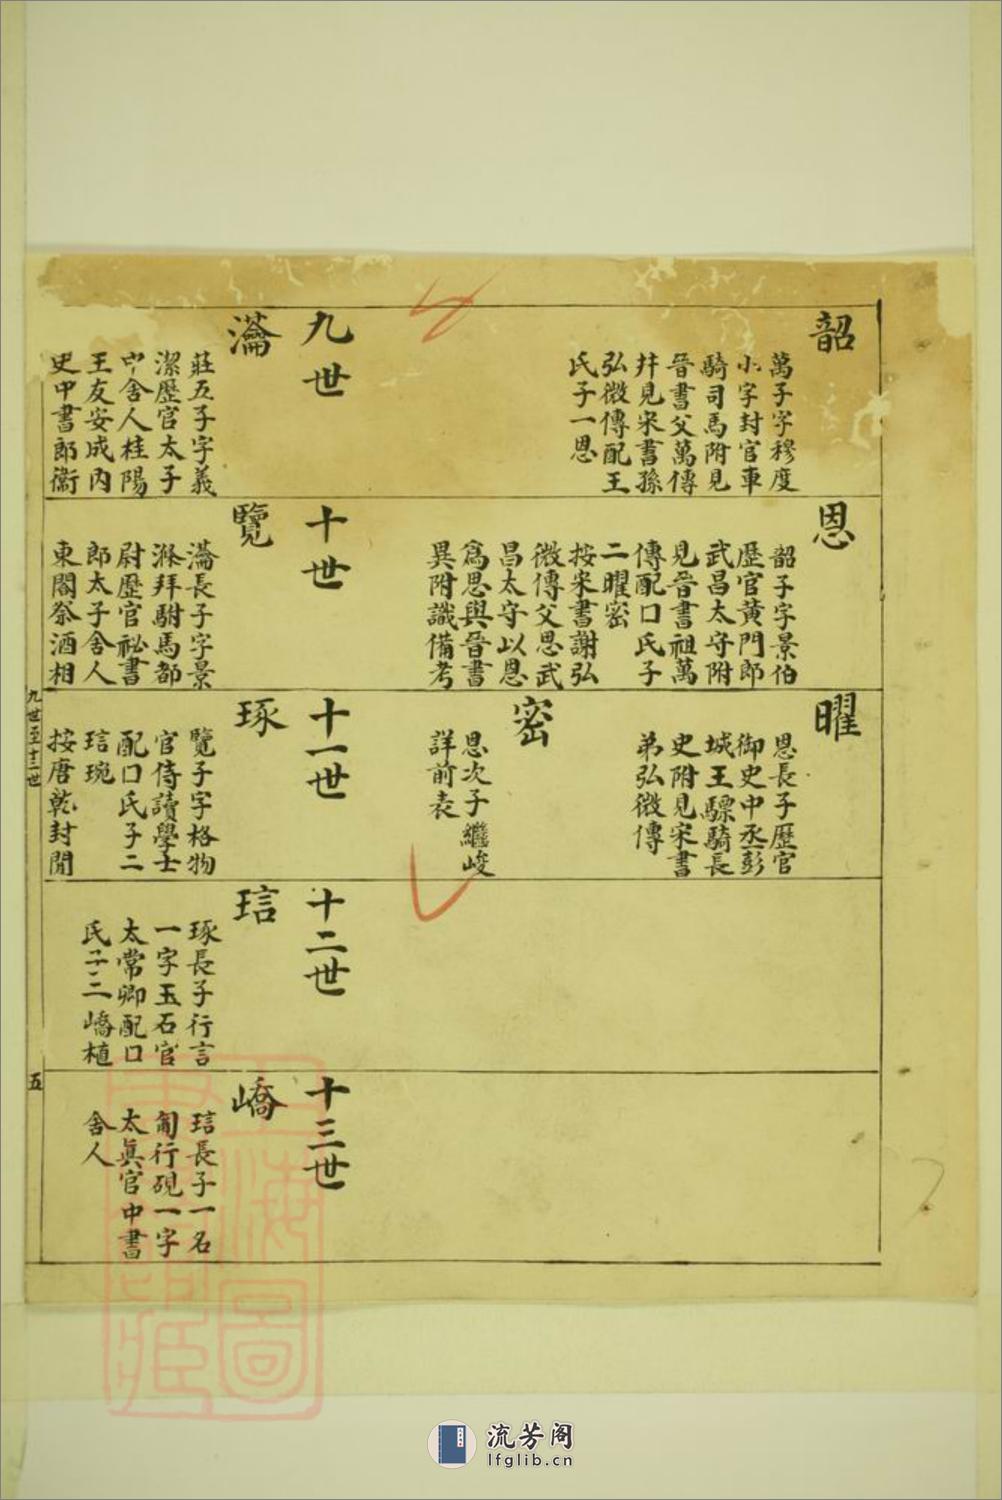 韶
萬子字穆度
小字封官車
騎司馬附見
晉書父萬傳
并見宋書孫
弘微傳配王
氏子一恩
恩
韶子字景伯
歷官黄門郎
武昌太守附
見晉書祖萬
傳配口氏子
二曜密
按宋書謝弘
微傳父思武
昌太守以恩
爲思與晉書
異附識備考
曜
恩長子歷官
御史中丞彭
城王驃騎長
史附見宋書
弟弘微傳
密
恩次子繼峻
詳前表
九世
瀹
莊五子字義
潔歷官太子
中舍人桂陽
王友安成内
史中書郎衞
十世
覽
瀹長子字景
滌拜駙馬都
尉歷官祕書
郎太子舍人
東閣祭酒相
十一世
琢
覽子字格物
官侍讀學士
配口氏子二
琂琬
按唐乾封閒
十二世
琂
琢長子行言
一字玉石官
太常卿配口
氏子二嶠植
十三世
嶠
琂長子一名
匍行硯一字
太眞官中書
舍人
九世至十三世
五
流芳阁
lfglib.cn